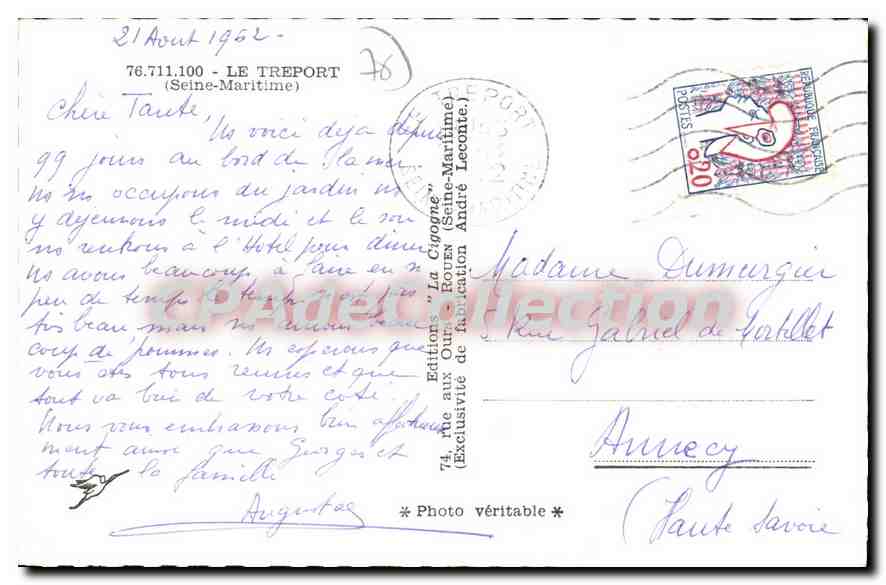 21 Aout 1962 -
76.711.100 - LE TREPORT
(Seine-Maritime)
76
Chère Tante,
Ns voici déja depuis
99 jours au bord de la mer
ns ns occupons du jardin ns
y dejeunons le midi et le soir
ns rentrons à l'Hotel pour diner
ns avons beaucoup à faire en si
peu de temps le temps n'est pas
tròs beau mais ns avons beau
coup de pommes. Ns esperons que
vous êtes tous reunis et que
tout va bien de votre coté.
Nous vous embrassons bien affectueuse
ment ainsi que Georges et
toute la famille
Augusta
Editions "La Cigogne"
74, rue aux Ours, ROUEN (Seine-Maritime)
(Exclusivité de fabrication André Leconte.)
* Photo véritable *
LE TREPORT
SEINE MARITIME
REPUBLIQUE FRANÇAISE
POSTES
0,20
Madame Dumurgier
5 Rue Gabriel de Mortillet
Annecy
(Haute Savoie
CPAdeCollection